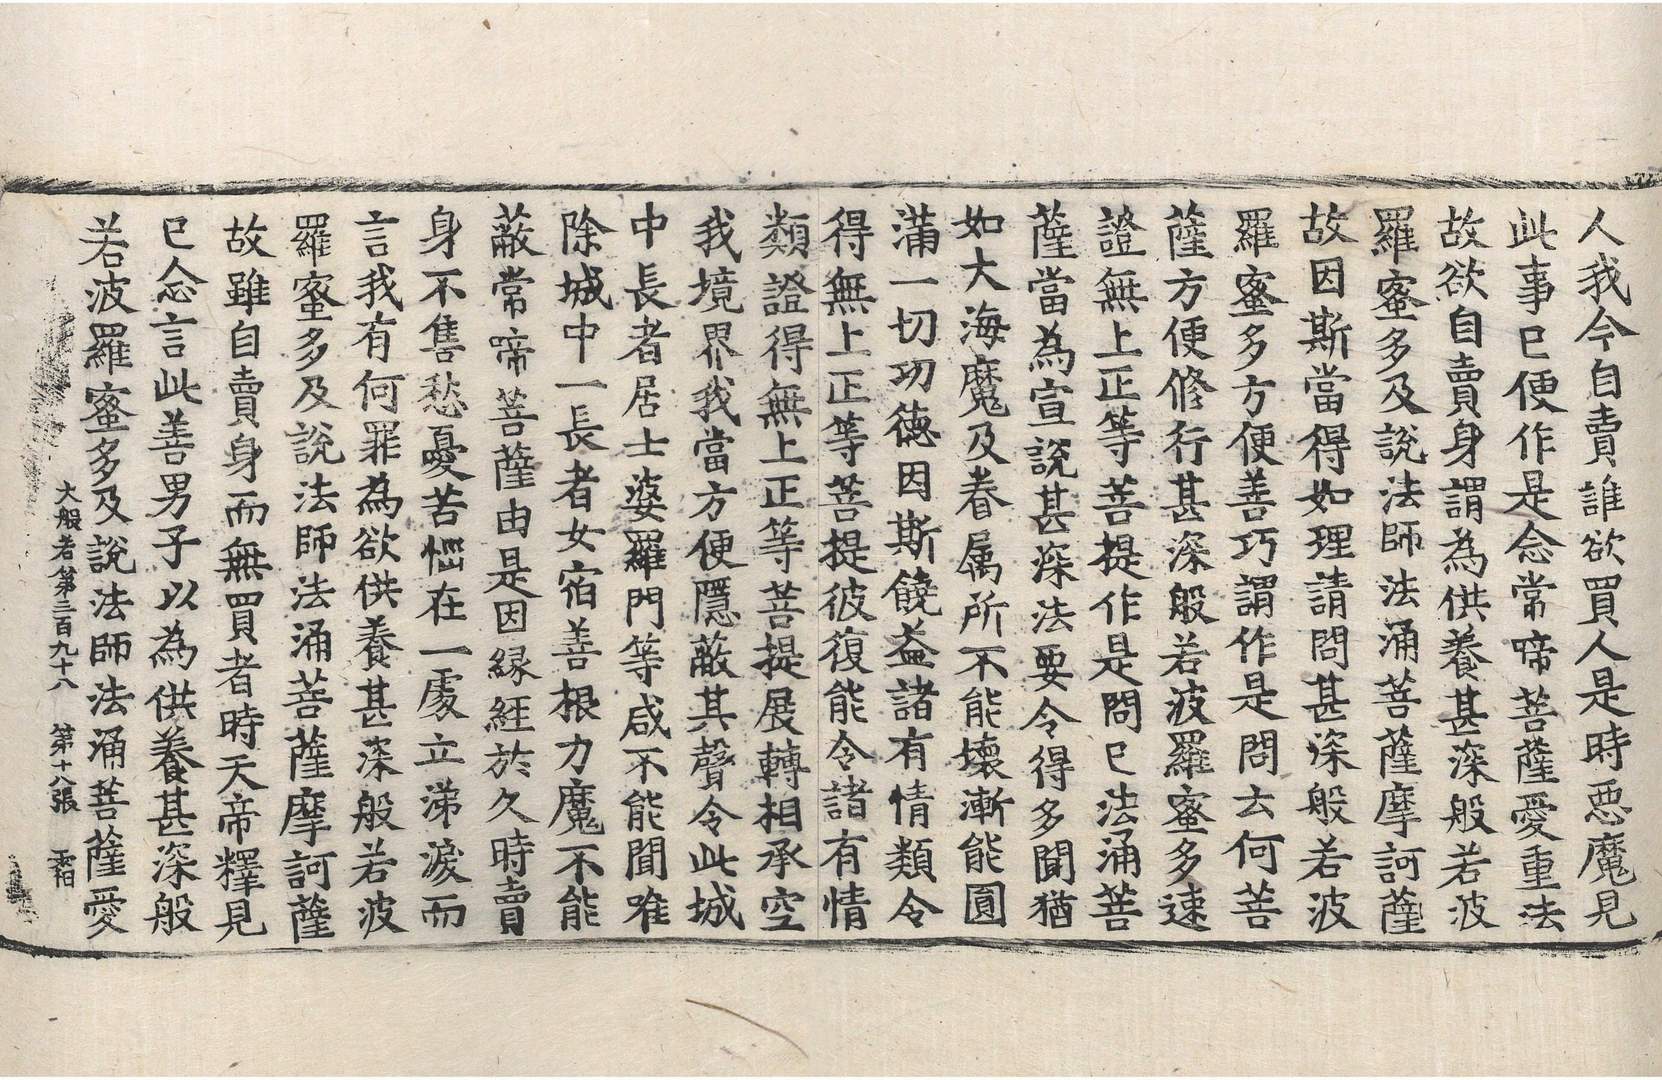 人我今自賣誰欲買人是時惡魔見
此事已便作是念常啼菩薩愛重法
故欲自賣身謂為供養甚深般若波
羅蜜多及說法師法涌菩薩摩訶薩
故因斯當得如理請問甚深般若波
羅蜜多方便善巧謂作是問云何菩
薩方便修行甚深般若波羅蜜多速
證無上正等菩提作是問已法涌菩
薩當為宣說甚深法要令得多聞猶
如大海魔及眷属所不能壞漸能圓
滿一切功德因斯饒益諸有情類令
得無上正等菩提彼復能令諸有情
類證得無上正等菩提展轉相承空
我境界我當方便隱蔽其聲令此城
中長者居士婆羅門等咸不能聞唯
除城中一長者女宿善根力魔不能
蔽常啼菩薩由是因緣經於久時賣
身不售愁憂苦惱在一處立涕淚而
言我有何罪為欲供養甚深般若波
羅蜜多及說法師法涌菩薩摩訶薩
故雖自賣身而無買者時天帝釋見
已念言此善男子以為供養甚深般
若波羅蜜多及說法師法涌菩薩愛
大般若第三百九十八 第十八張 霜